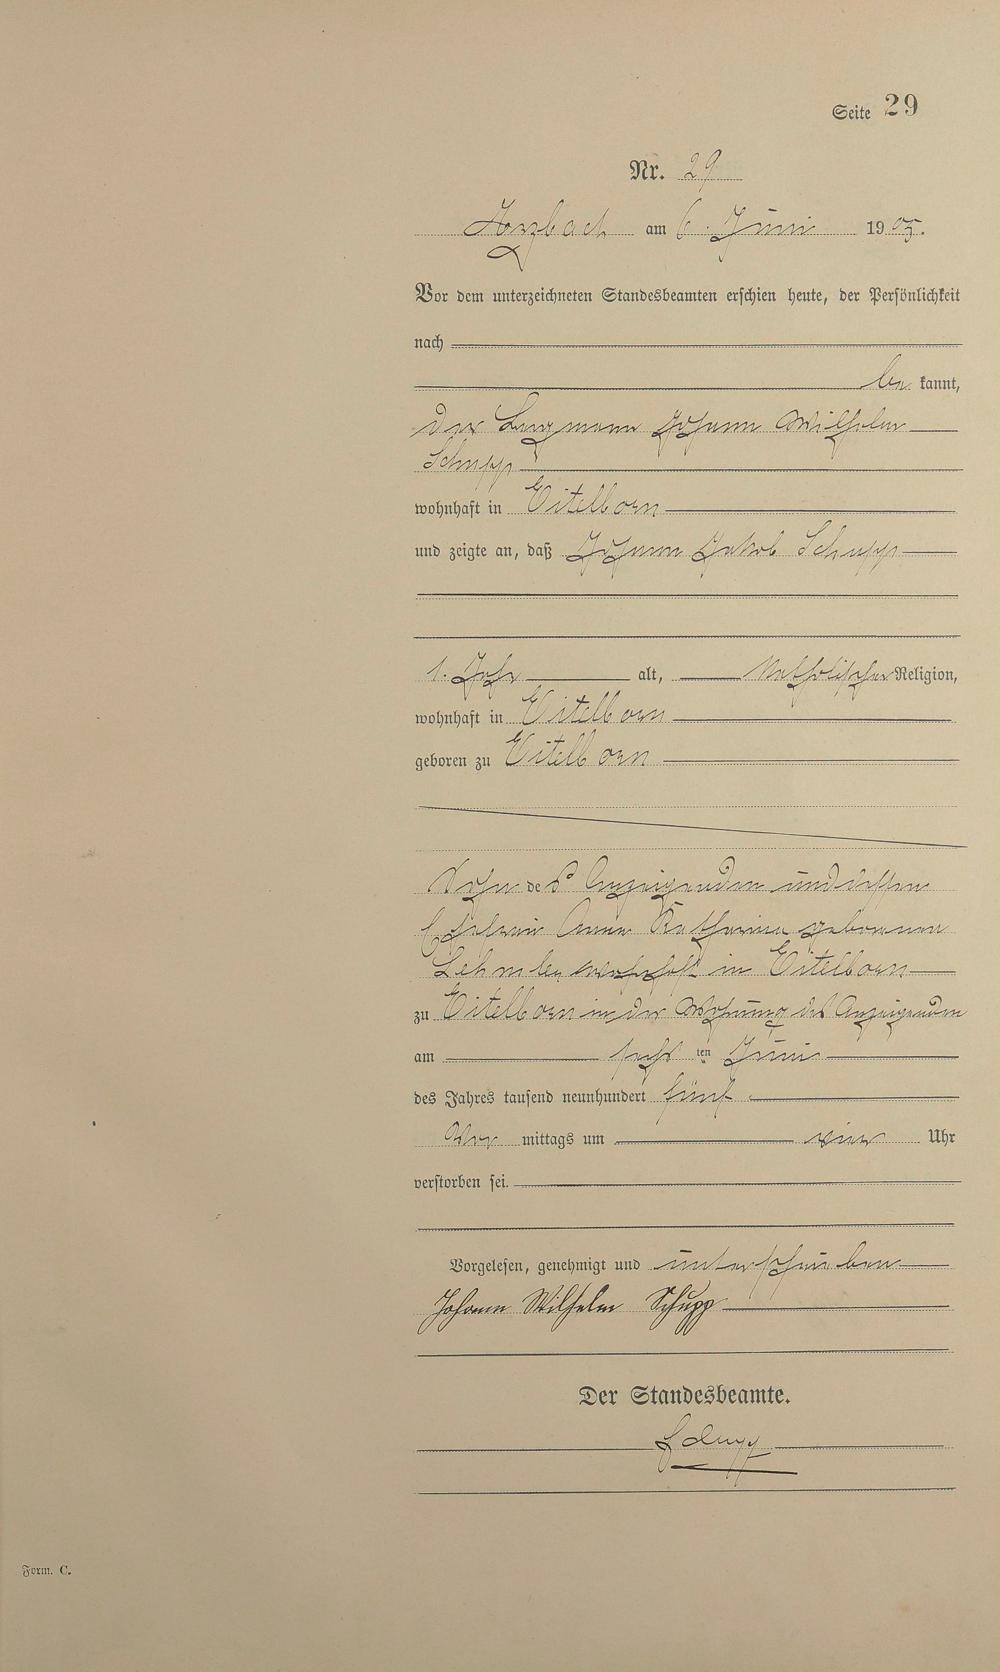 Seite 29
Nr. 29
Arzbach am 6. Juni 1905.
Vor dem unterzeichneten Standesbeamten erschien heute, der Persönlichkeit
nach
be kannt,
der Bergmann Johann Wilhelm
Schupp
wohnhaft in Eitelborn
und zeigte an, daß Johann Jakob Schupp
1. Jahr alt, katholischer Religion,
wohnhaft in Eitelborn
geboren zu Eitelborn
Sohn des Anzeigenden und dessen
Ehefrau Anna Katharina geborenen
wohnhaft in Eitelborn
zu Eitelborn in der Wohnung des Anzeigenden
am sechs ten Juni
des Jahres tausend neunhundert fünf
Vor mittags um vier Uhr
verstorben sei.
Vorgelesen, genehmigt und unterschrieben
Johann Wilhelm Schupp
Der Standesbeamte.
Form. C.